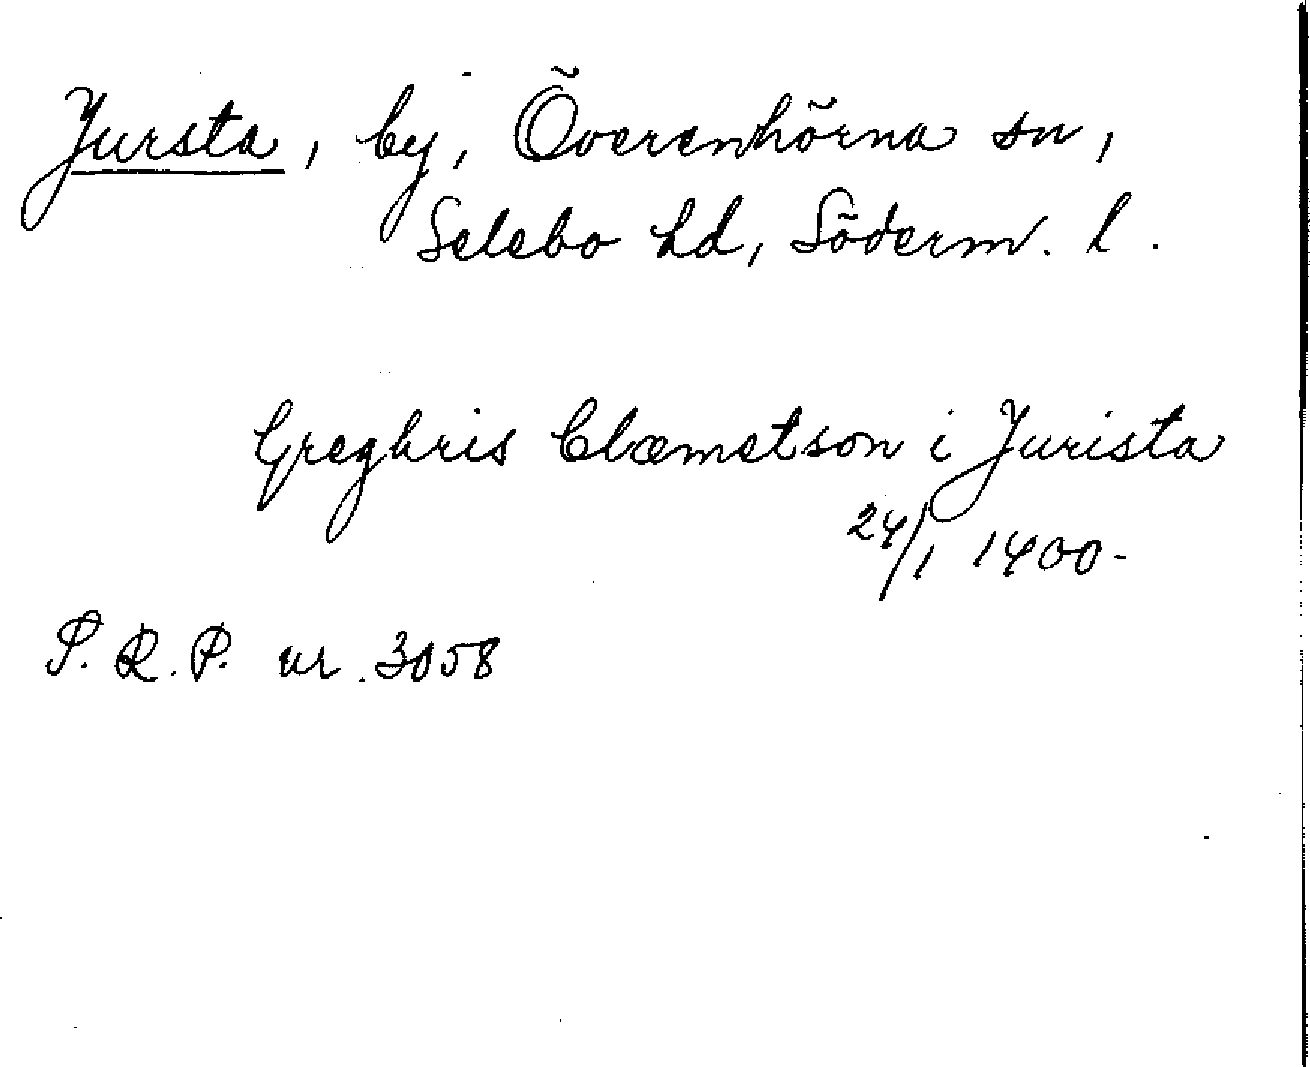 Jursta, by, Överenhörna sn,
Selebo hd, Söderm. l.
Greghris Clæmetson i Jurista
24/1 1400-
S. R. P. nr. 3058